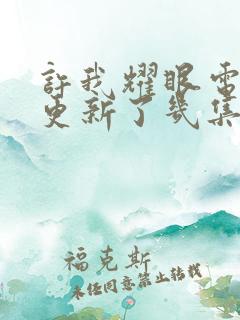 許我耀眼電
更新了幾集
福克斯
未經同意禁止轉載